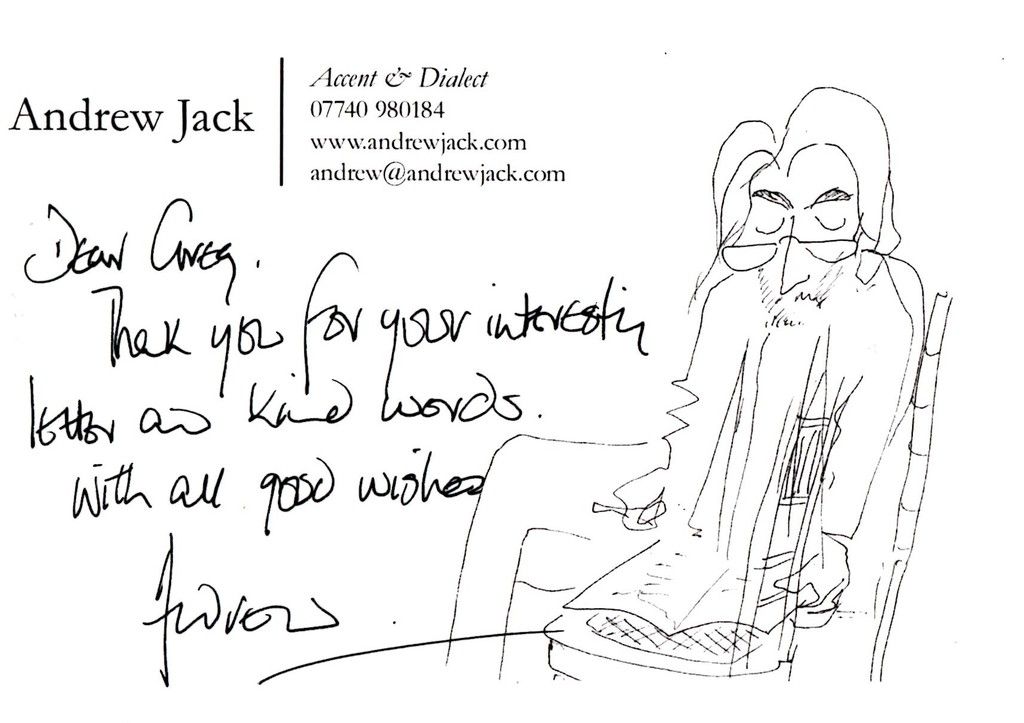 Andrew Jack
Accent & Dialect
07740 980184
www.andrewjack.com
andrew@andrewjack.com
Dear Greg.
Thank you for your interesting
letter and kind words.
With all good wishes
Andrew